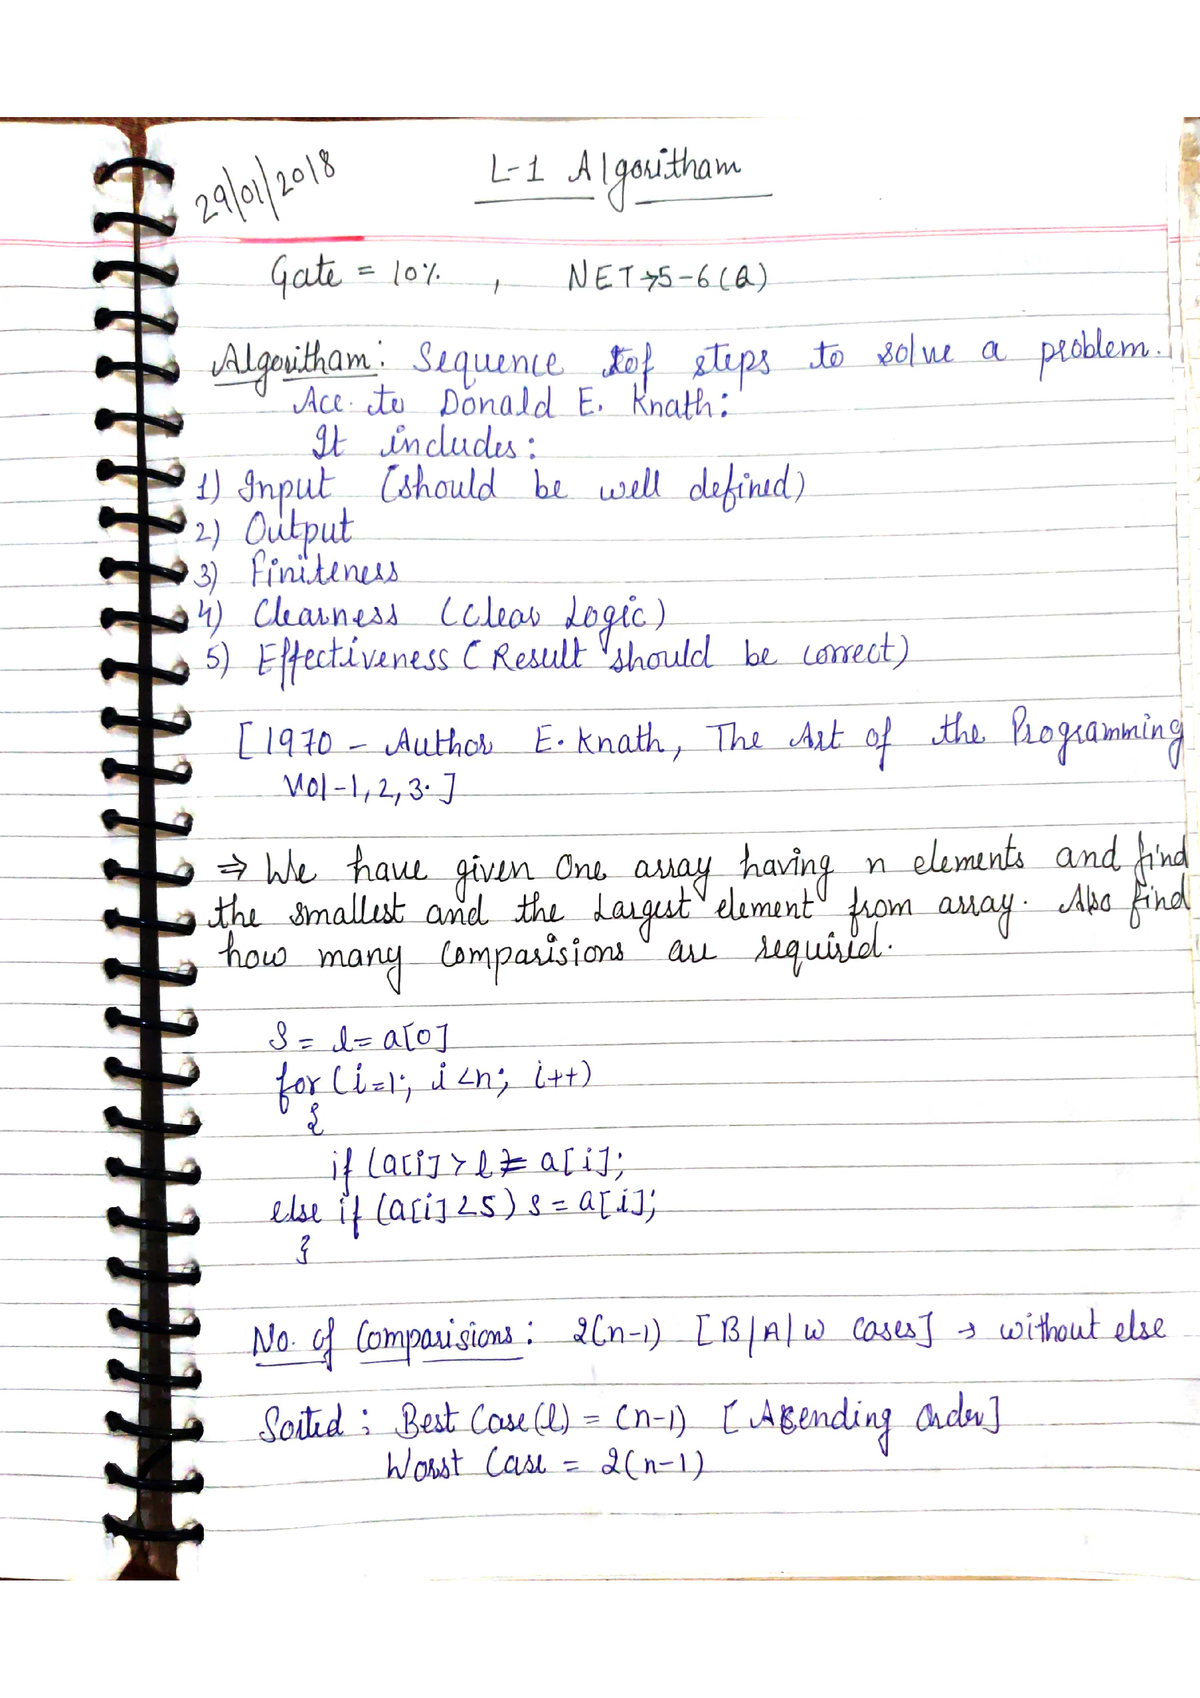 29/01/2018
L-1 Algoritham
Gate = 10% , NET→5-6(Q)
Algoritham: Sequence of steps to solve a problem.
Acc. to Donald E. Knath:
It includes:
1) Input (should be well defined)
2) Output
3) Finiteness
4) Clearness (Clear Logic)
5) Effectiveness (Result should be correct)
[1970 - Author E. Knath, The Art of the Programming
Vol-1,2,3.]
⇒ We have given One array having n elements and find
the smallest and the Largest element from array. Also find
how many Comparisions are required.
S = l = a[0]
for (i=1; i<n; i++)
{
if (a[i] > l = a[i];
else if (a[i] < S) S = a[i];
}
No. of Comparisions: 2(n-1) [B/A/W Cases] → without else
Sorted: Best Case(l) = (n-1) [Ascending Order]
Worst Case = 2(n-1)